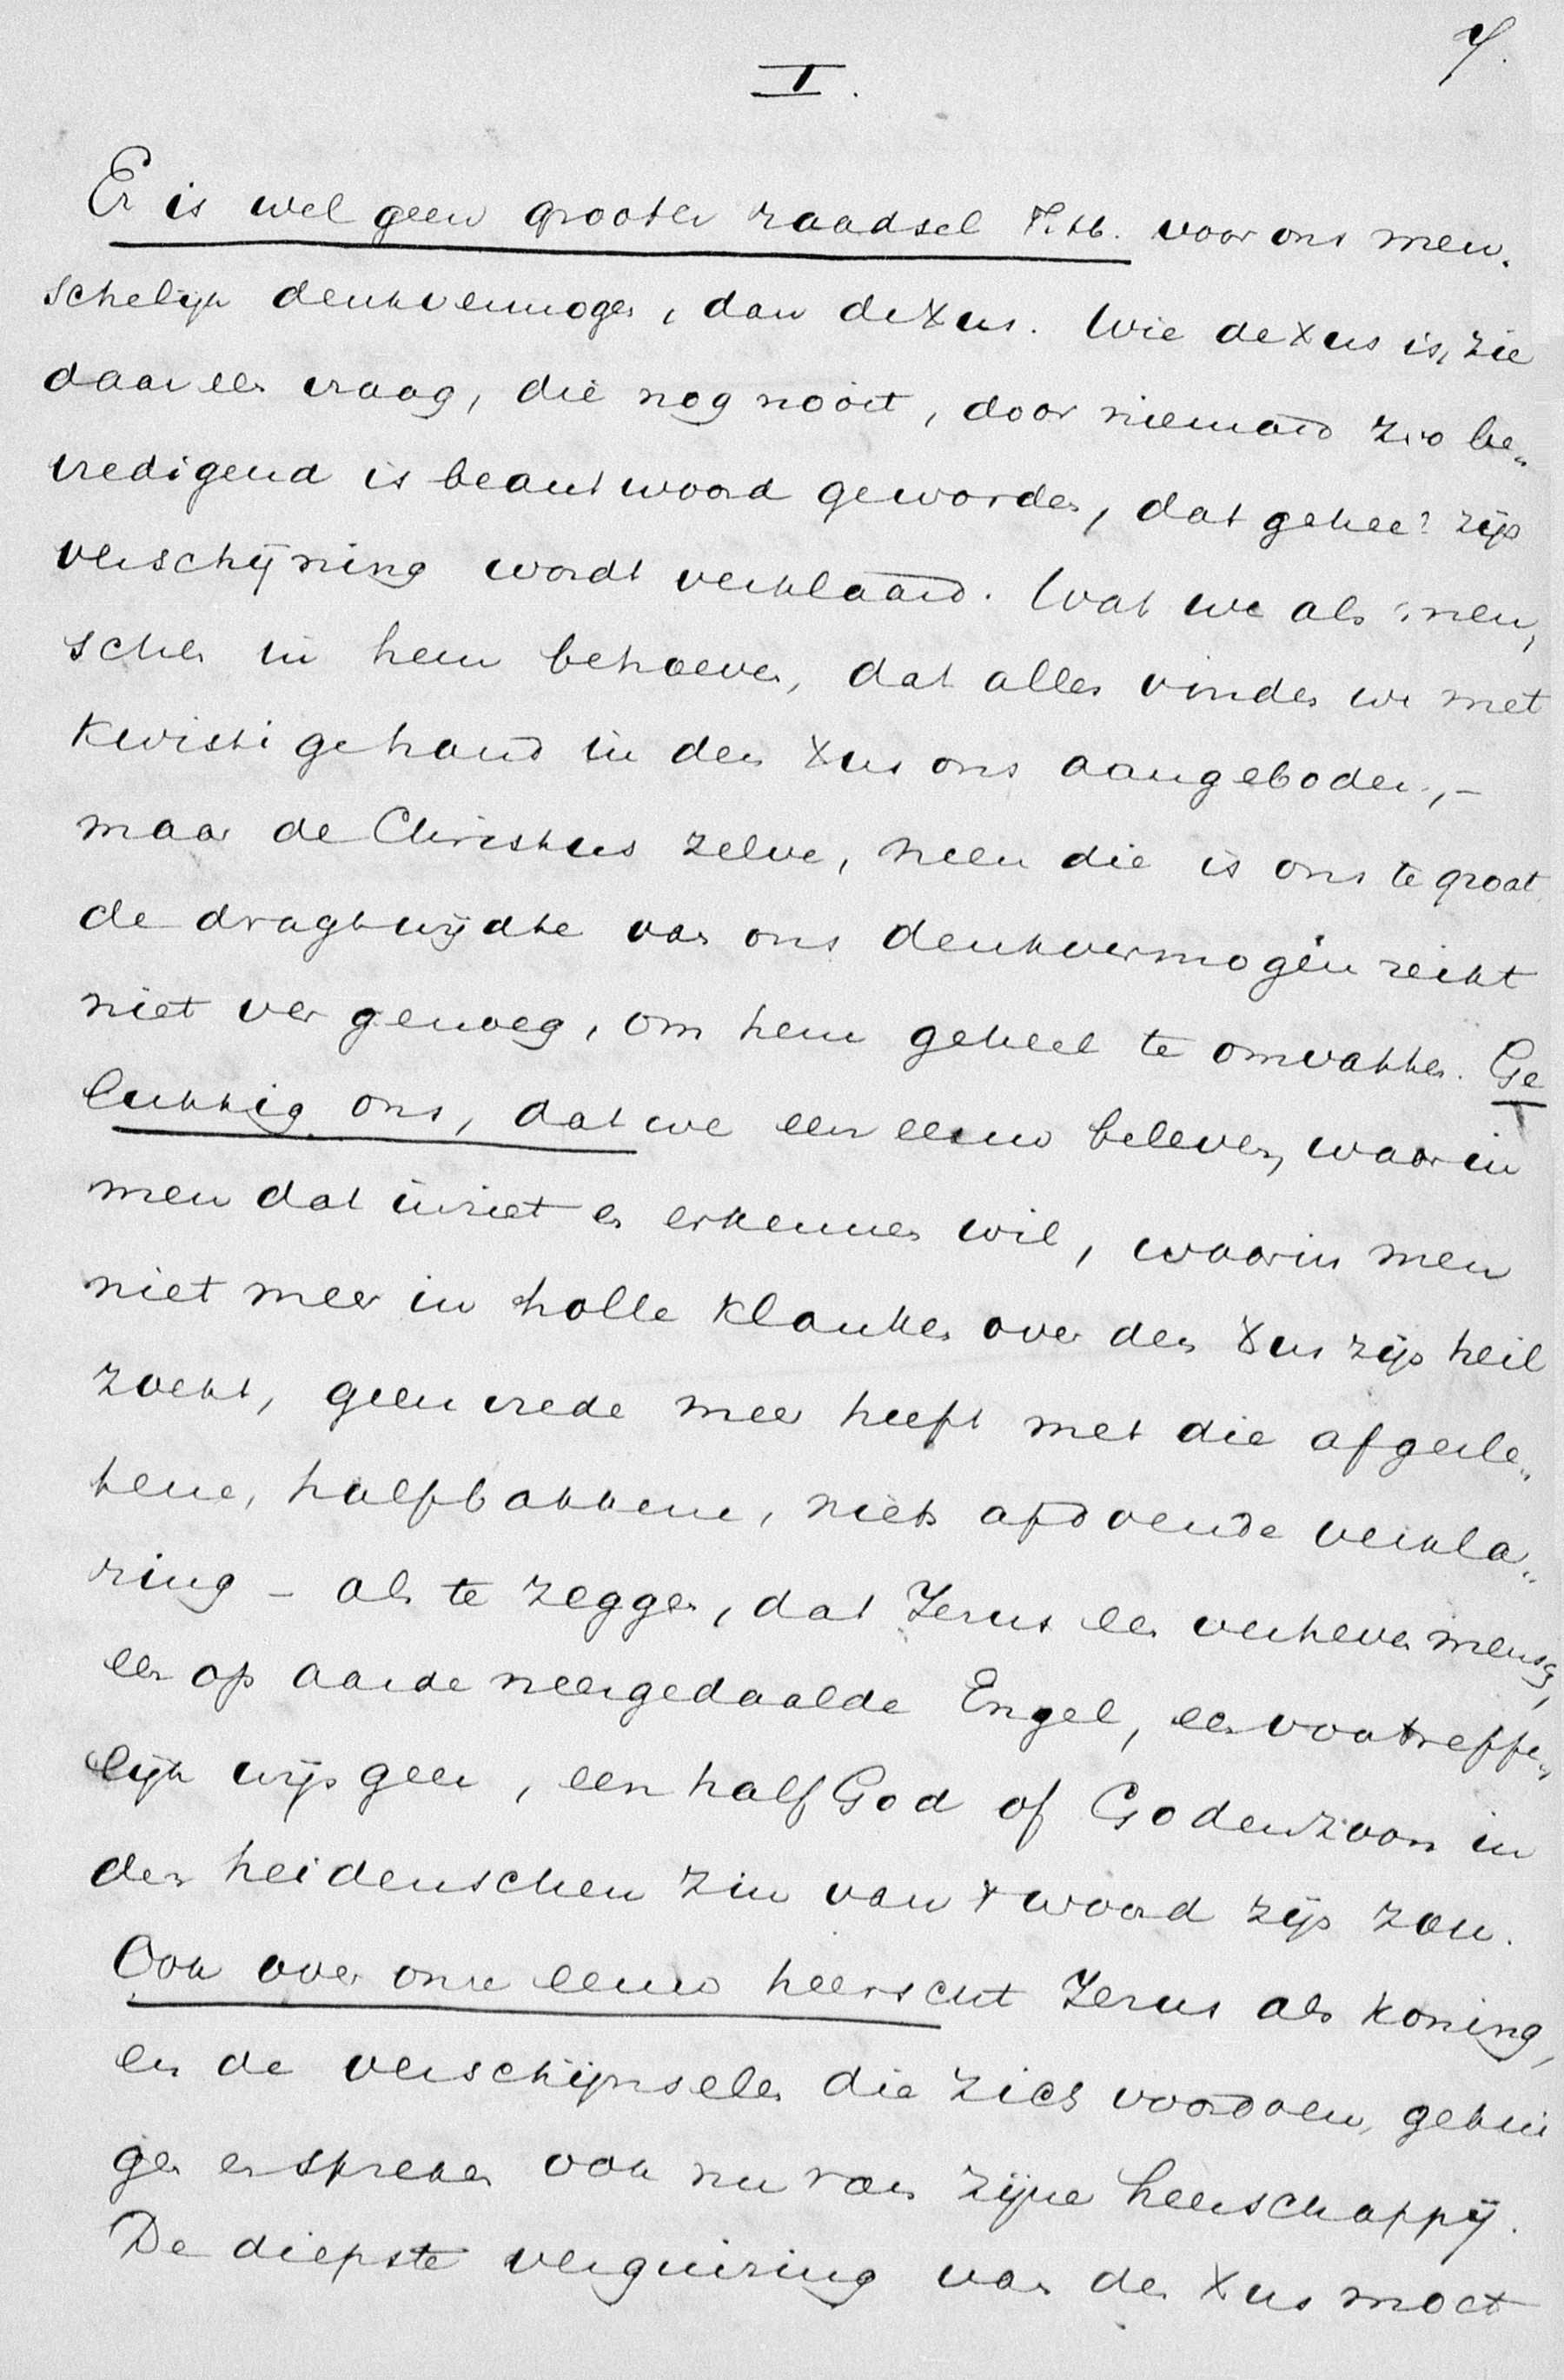 7.
I.
Er is wel geen grooter raadsel voor ons men„
schelijk denkvermogen, dan de Xus. Wie de Xus is, zie
daar een vraag, die nog nooit, door niemand zoo be„
vredigend is beantwoord geworden, dat geheel zijn
verschijning wordt verklaard. Wat we als men„
schen in hem behoeven, dat alles vinden we met
kwistige hand in den Xus ons aangeboden, –
maar de Christus zelve, neen die is ons te groot
de dragtwijdte van ons denkvermogen reikt
niet ver genoeg, om hem geheel te omvatten. Ge
lukkig ons, dat we een eeuw beleven, waarin
men dat inziet en erkennen wil, waarin men
niet meer in holle klanken over den Xus zijn heil
zoekt, geen vrede meer heeft met die afgesle„
tene, halfbakkene, niets afdoende verkla„
ring – als te zeggen, dat Jezus een verheven mensch,
een op aarde neergedaalde Engel, een voortreffe„
lijk wijsgeer, een half God of Godenzoon in
den heidenschen zin van 't woord zijn zou.
Ook over onze eeuw heerscht Jezus als Koning,
en de verschijnselen die zich voordoen, getui
gen en spreken ook nu van zijne heerschappij.
De diepste verguizing van den Xus moet